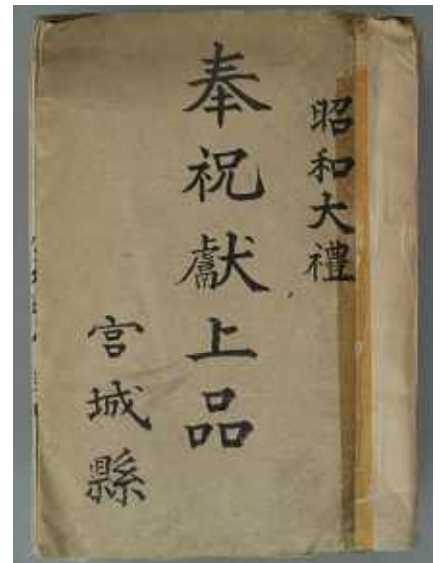 昭和大禮
奉祝獻上品
宮城縣